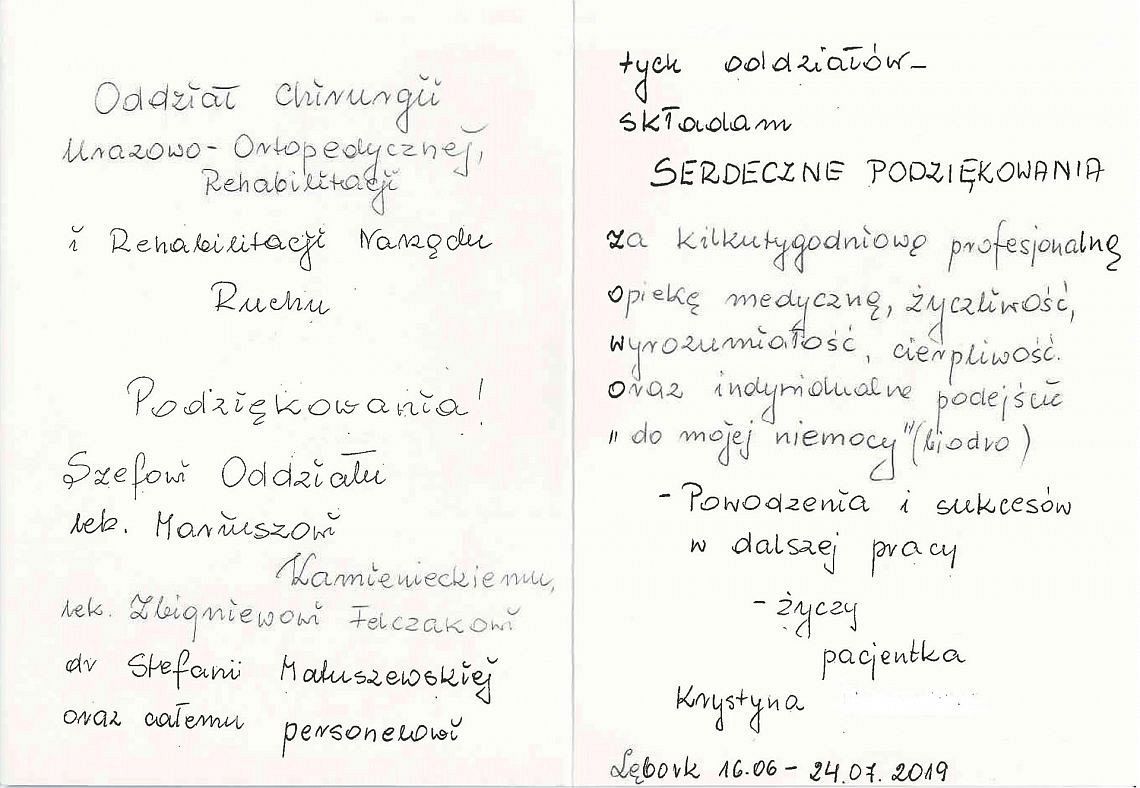 Oddział Chirurgii
Urazowo-Ortopedycznej,
Rehabilitacji
i Rehabilitacji Narządu
Ruchu
Podziękowania!
Szefowi Oddziału
lek. Mariuszowi
Kamienieckiemu,
lek. Zbigniewowi Felczakowi
dr Stefanii Matuszewskiej
oraz całemu personelowi
tych oddziałów-
składam
SERDECZNE PODZIĘKOWANIA
za kilkutygodniową profesjonalną
opiekę medyczną, życzliwość,
wyrozumiałość, cierpliwość.
oraz indywidualne podejście
"do mojej niemocy" (biodro)
- Powodzenia i sukcesów
w dalszej pracy
- życzy
pacjentka
Krystyna
Lębork 16.06 - 24.07. 2019